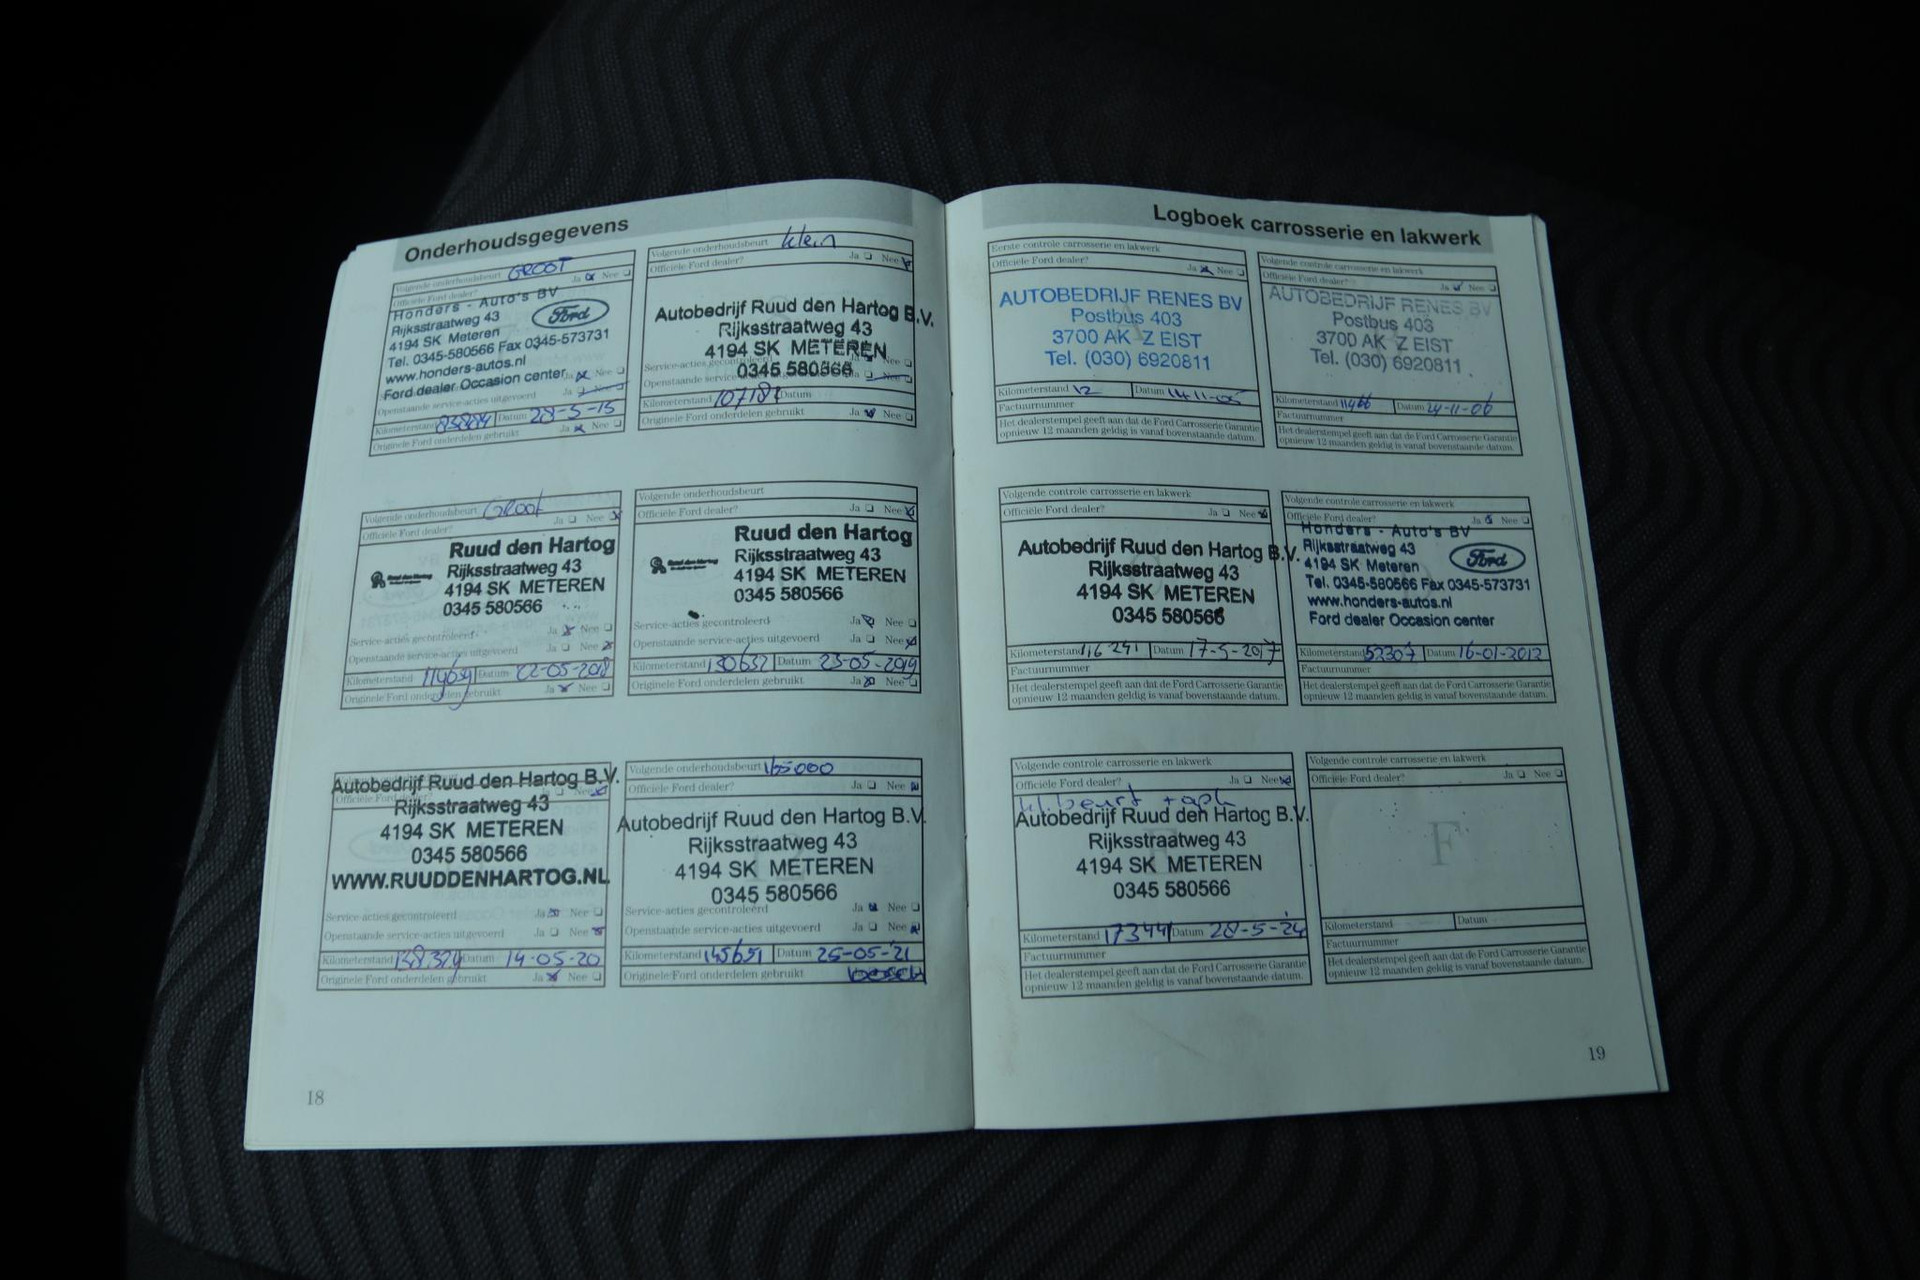 Onderhoudsgegevens
Volgende onderhoudsbeurt GROOT
Officiële Ford dealer? Ja Nee
Honders - Auto's BV
Rijksstraatweg 43
4194 SK Meteren
Tel. 0345-580566 Fax 0345-573731
www.honders-autos.nl
Ford dealer Occasion center
Ford
Ja Nee
Openstaande service-acties uitgevoerd Ja Nee
Kilometerstand Datum 28-5-15
Originele Ford onderdelen gebruikt Ja Nee
Volgende onderhoudsbeurt klein
Officiële Ford dealer? Ja Nee
Autobedrijf Ruud den Hartog B.V.
Rijksstraatweg 43
4194 SK METEREN
0345 580566
Service-acties gecontroleerd Nee
Openstaande service Ja Nee
Kilometerstand Datum
Originele Ford onderdelen gebruikt Ja Nee
Volgende onderhoudsbeurt Groot
Officiële Ford dealer? Ja Nee
Ruud den Hartog
Rijksstraatweg 43
4194 SK METEREN
0345 580566
Service-acties gecontroleerd Ja Nee
Openstaande service-acties uitgevoerd Ja Nee
Kilometerstand Datum 22-05-2018
Originele Ford onderdelen gebruikt Ja Nee
Volgende onderhoudsbeurt
Officiële Ford dealer? Ja Nee
Ruud den Hartog
Rijksstraatweg 43
4194 SK METEREN
0345 580566
Service-acties gecontroleerd Ja Nee
Openstaande service-acties uitgevoerd Ja Nee
Kilometerstand 130632 Datum 23-05-2019
Originele Ford onderdelen gebruikt Ja Nee
Autobedrijf Ruud den Hartog B.V.
Rijksstraatweg 43
4194 SK METEREN
0345 580566
WWW.RUUDDENHARTOG.NL
Service-acties gecontroleerd Ja Nee
Openstaande service-acties uitgevoerd Ja Nee
Kilometerstand 138.324 Datum 14-05-20
Originele Ford onderdelen gebruikt Ja Nee
Volgende onderhoudsbeurt 165000
Officiële Ford dealer? Ja Nee
Autobedrijf Ruud den Hartog B.V.
Rijksstraatweg 43
4194 SK METEREN
0345 580566
Service-acties gecontroleerd Ja Nee
Openstaande service-acties uitgevoerd Ja Nee
Kilometerstand 145651 Datum 25-05-'21
Originele Ford onderdelen gebruikt bosch
18
Logboek carrosserie en lakwerk
Eerste controle carrosserie en lakwerk
Officiële Ford dealer? Ja Nee
AUTOBEDRIJF RENES BV
Postbus 403
3700 AK Z EIST
Tel. (030) 6920811
Kilometerstand 12 Datum 14-11-05
Factuurnummer
Het dealerstempel geeft aan dat de Ford Carrosserie Garantie
opnieuw 12 maanden geldig is vanaf bovenstaande datum.
Volgende controle carrosserie en lakwerk
Officiële Ford dealer? Ja Nee
AUTOBEDRIJF RENES BV
Postbus 403
3700 AK Z EIST
Tel. (030) 6920811
Kilometerstand 11466 Datum 24-11-06
Factuurnummer
Het dealerstempel geeft aan dat de Ford Carrosserie Garantie
opnieuw 12 maanden geldig is vanaf bovenstaande datum.
Volgende controle carrosserie en lakwerk
Officiële Ford dealer? Ja Nee
Autobedrijf Ruud den Hartog B.V.
Rijksstraatweg 43
4194 SK METEREN
0345 580566
Kilometerstand 116 241 Datum 17-5-2017
Factuurnummer
Het dealerstempel geeft aan dat de Ford Carrosserie Garantie
opnieuw 12 maanden geldig is vanaf bovenstaande datum.
Volgende controle carrosserie en lakwerk
Officiële Ford dealer? Ja Nee
Honders - Auto's BV
Rijksstraatweg 43
4194 SK Meteren
Tel. 0345-580566 Fax 0345-573731
www.honders-autos.nl
Ford dealer Occasion center
Ford
Kilometerstand 52307 Datum 16-01-2012
Factuurnummer
Het dealerstempel geeft aan dat de Ford Carrosserie Garantie
opnieuw 12 maanden geldig is vanaf bovenstaande datum.
Volgende controle carrosserie en lakwerk
Officiële Ford dealer? Ja Nee
kl. beurt + apk
Autobedrijf Ruud den Hartog B.V.
Rijksstraatweg 43
4194 SK METEREN
0345 580566
Kilometerstand 173441 Datum 28-5-'24
Factuurnummer
Het dealerstempel geeft aan dat de Ford Carrosserie Garantie
opnieuw 12 maanden geldig is vanaf bovenstaande datum.
Volgende controle carrosserie en lakwerk
Officiële Ford dealer? Ja Nee
F
Kilometerstand Datum
Factuurnummer
Het dealerstempel geeft aan dat de Ford Carrosserie Garantie
opnieuw 12 maanden geldig is vanaf bovenstaande datum.
19